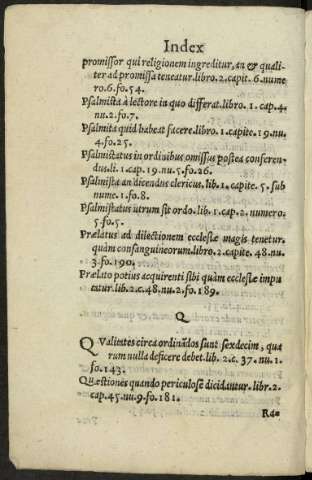 Index
promissor qui religionem ingreditur, an & quali-
ter ad promissa teneatur. libro. 2. capit. 6. nume
ro. 6. fo. 54.
Psalmista à lectore in quo differat. libro. 1. cap. 4.
nu. 2. fo. 7.
Psalmista quid habeat facere. libro. 1. capite. 19. nu.
4. fo. 25.
Psalmistatus in ordinibus omissus postea conferen-
dus. li. 1. cap. 19. nu. 5. fo. 26.
Psalmista an dicendus clericus. lib. 1. capite. 5. sub
nume. 1. fo. 8.
Psalmistatus utrum sit ordo. lib. 1. cap. 2. numero.
5. fo. 5.
Prælatus ad dilectionem ecclesiæ magis tenetur,
quàm consanguineorum. libro. 2. capite. 48. nu.
3. fo. 190.
Prælato potius acquirenti sibi quàm ecclesiæ impu
tatur. lib. 2. c. 48. nu. 2. fo. 189.
Q
Qualitates circa ordinãdos sunt sexdecim, qua
rum nulla deficere debet. lib. 2. c. 37. nu. 1.
fo. 143.
Quæstiones quando periculosè dicidantur. libr. 2.
cap. 45. nu. 9. fo. 181.
Ra-